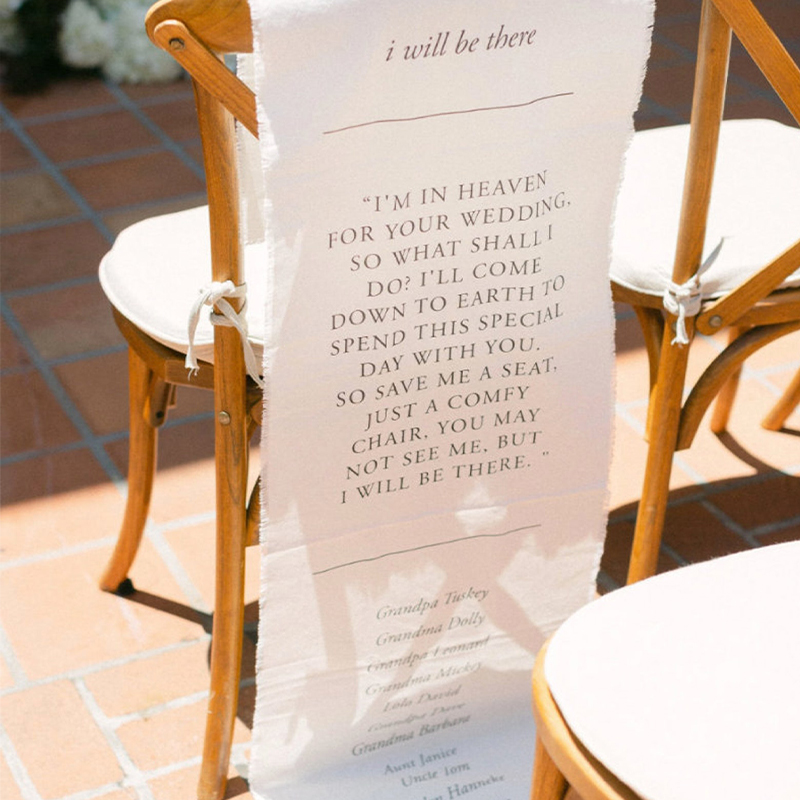 i will be there
“I'M IN HEAVEN
FOR YOUR WEDDING,
SO WHAT SHALL I
DO? I'LL COME
DOWN TO EARTH TO
SPEND THIS SPECIAL
DAY WITH YOU.
SO SAVE ME A SEAT,
JUST A COMFY
CHAIR, YOU MAY
NOT SEE ME, BUT
I WILL BE THERE. ”
Grandpa Tuskey
Grandma Dolly
Grandpa Leonard
Grandma Mickey
Lolo David
Grandpa Dave
Grandma Barbara
Aunt Janice
Uncle Tom
Hanneke